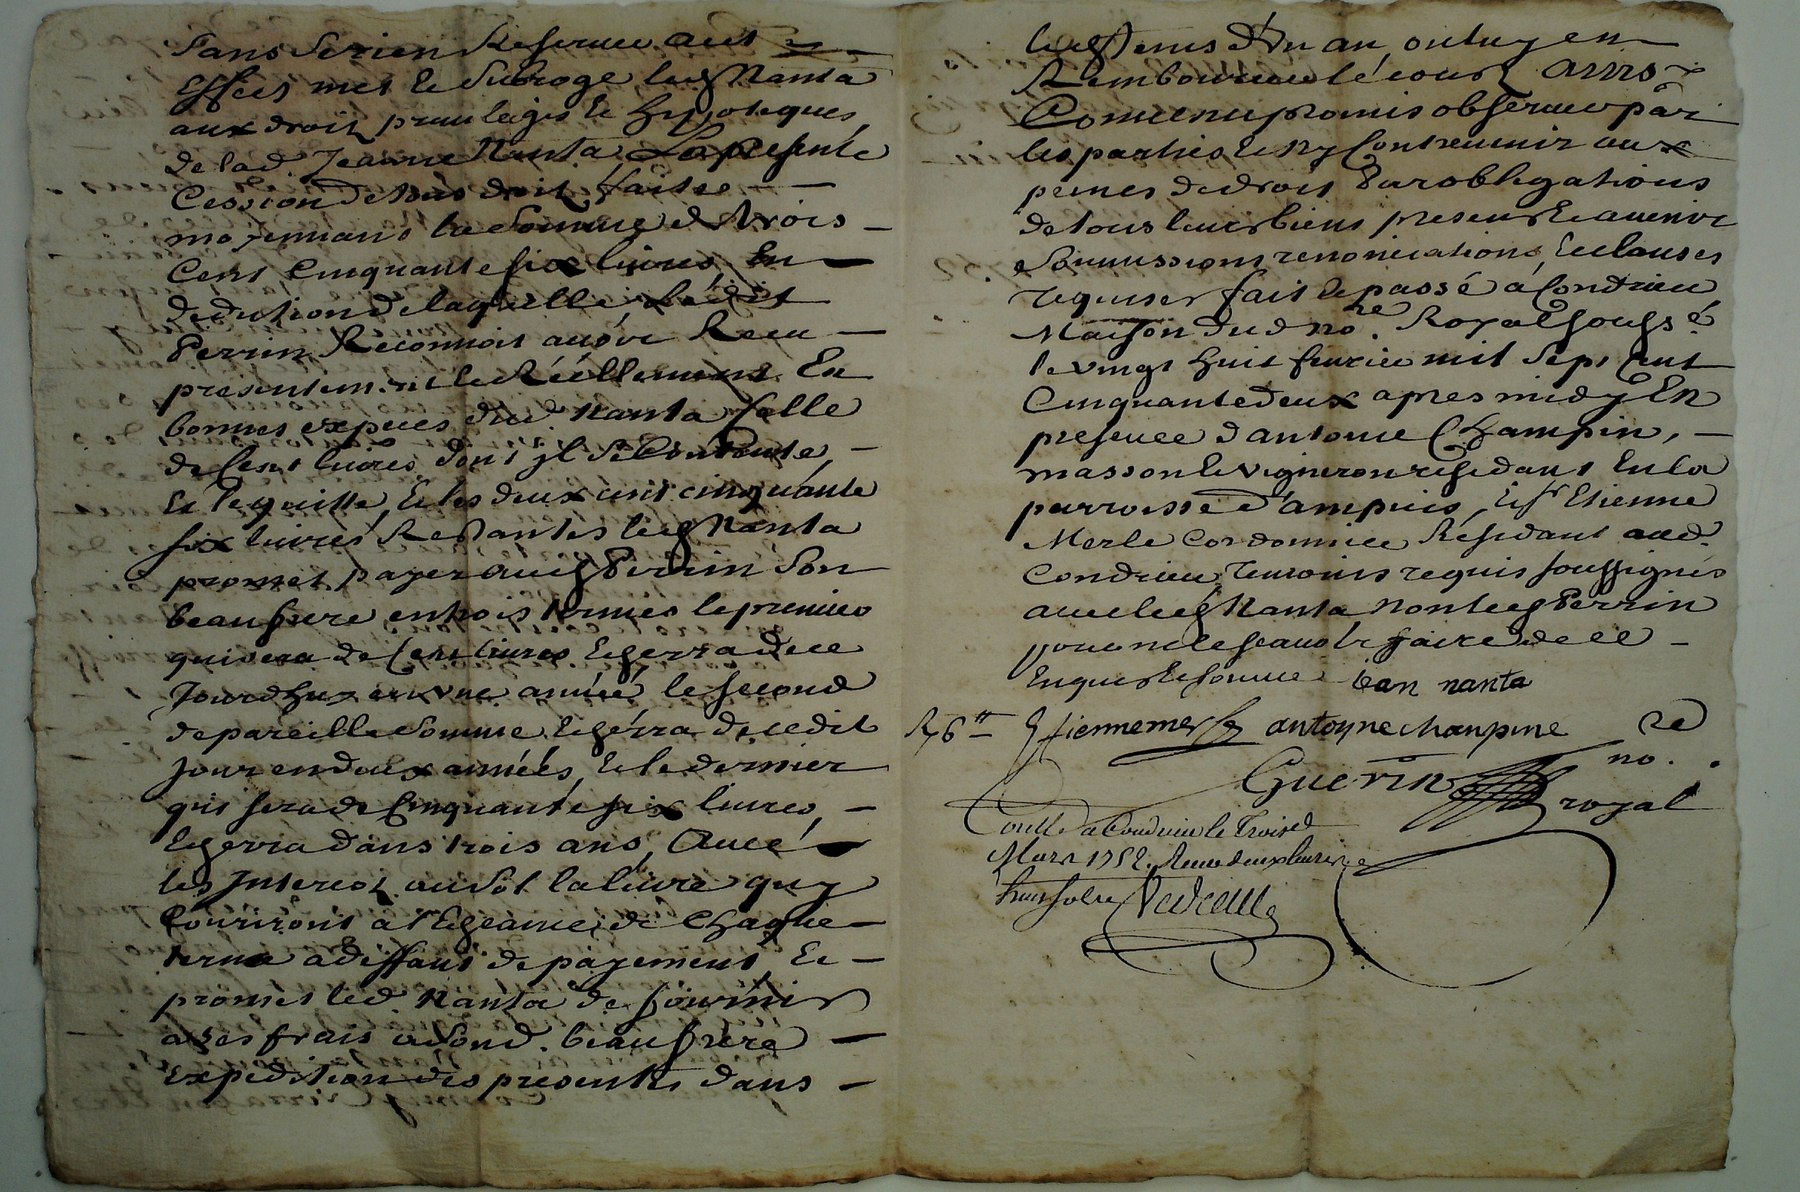 Sans se rien Reserver aus
Effets met et subroge led Nanta
aux droit privileges et hypoteques
de lad. Jeanne Nanta La presente
Cession de tous droit faitte
moyennant la somme de trois
Cent Cinquante six livres En
dedution de laquelle led
Perrin Reconnoit avoir Recu
presentement et Réellement En
bonnes expeces dud. Nanta Celle
de Cent livres dont jl se Contente
Et le quitte, Et les deux cent cinquante
six livres Restantes led Nanta
promet payer aud Perrin Son
beaufrere en trois termes le premier
qui sera de Cent livres Echerra de ce
Jourdhuy en une année le second
de pareille Somme Echerra de cedit
Jour en deux années, Et le dernier
qui sera de Cinquante six livres,
Echerra dans trois ans, Avec
les Interest au sol la livre quy
Couriront a l'Echeance de Chaque
terme a deffaut de payement Et
promet led. Nanta de fournir
a ses frais a sond. beaufrere
Expedition des presentes dans
d'un an ou luy en
Rembourcer le cout
Convenu promis observer par
les parties et ny Contrevenir aux
peines de droit par obligations
de tous leurs biens presents et avenir
Soumissions renonciations Et clauses
requises fait et passé a Condrieu
Maison dud no.re Royal soussé
le vingt huit fevrier mil sept cent
Cinquante deux apres midy En
presence d antoine Champin,
masson et vigneron residant En la
parroisse d'ampuis, Et sr Etienne
Merle Cordonnier Résidant aud.
Condrieu temoins requis soussignés
avec led Nanta non led Perrin
pour ne le scavoir faire de ce
Enquis Et somme iean nanta
R 6 tt Etienne merle antoyne chanpine
Guerin no.re royal
Conllé a Condrieu le Trois
Mars 1752. Recu deux livres
huit sols